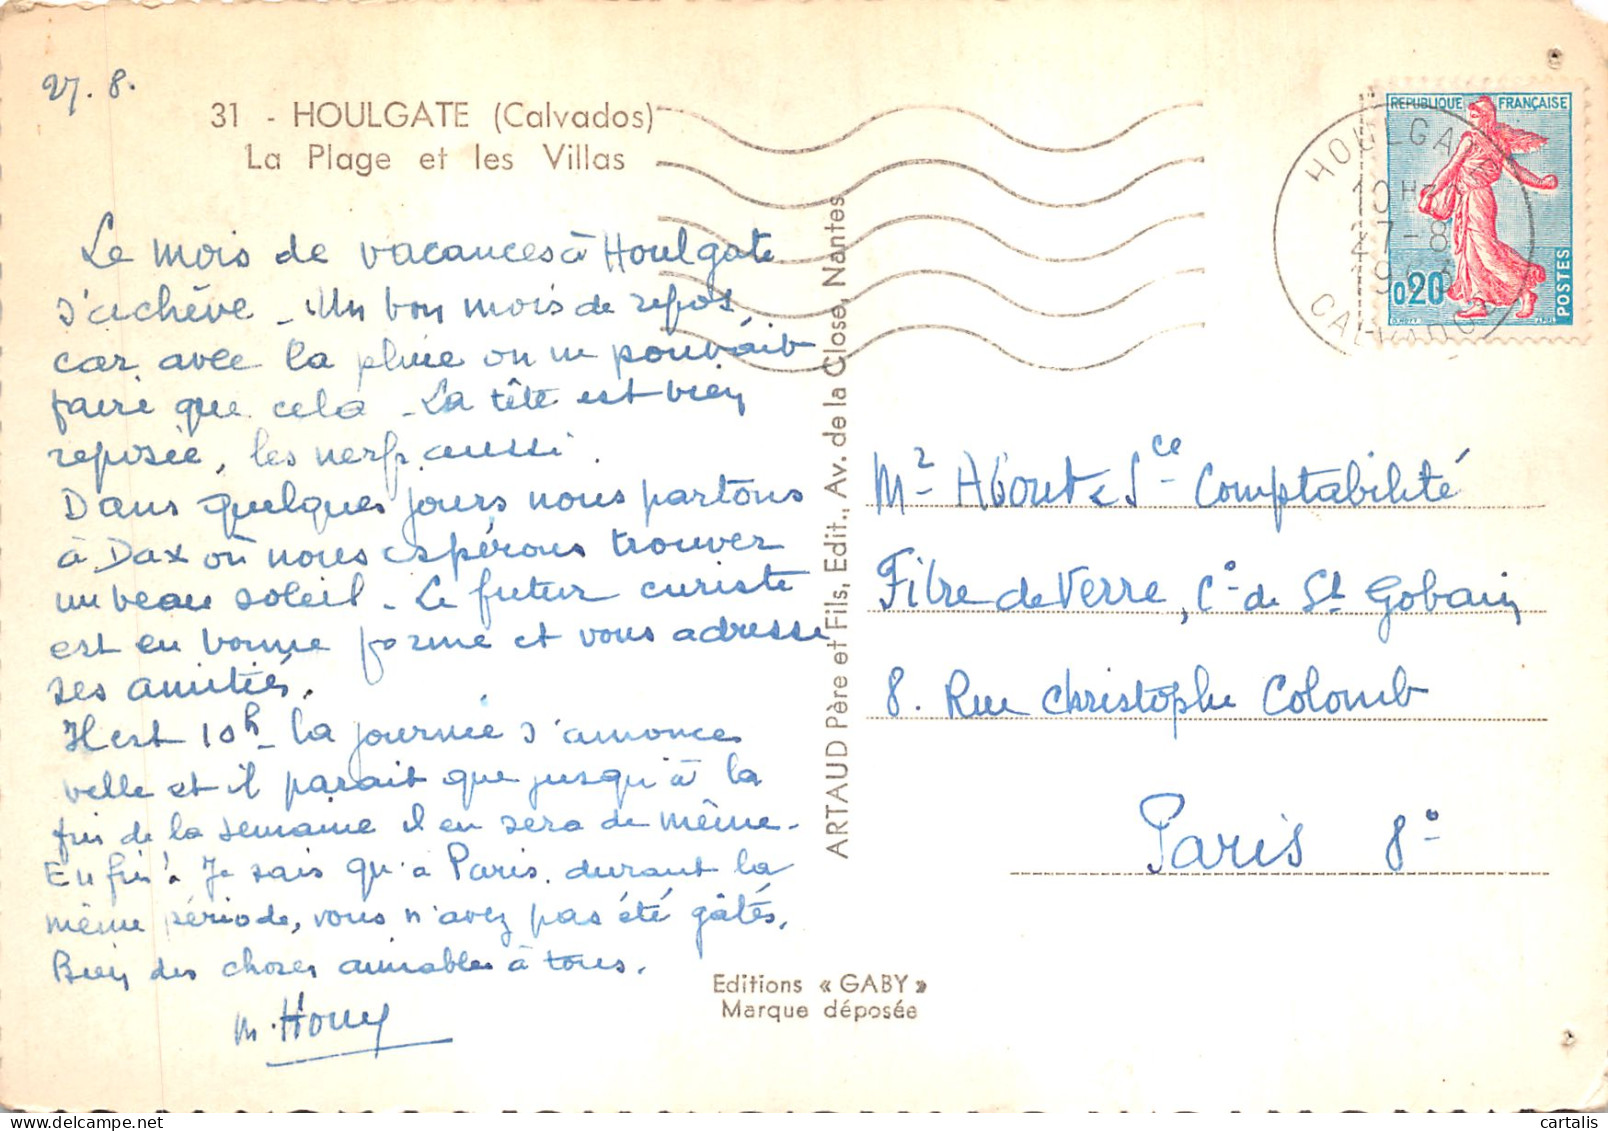 27.8.
31 - HOULGATE (Calvados)
La Plage et les Villas
Le mois de vacances à Houlgate
s'achève - Un bon mois de repos
car avec la pluie on ne pouvait
faire que cela - La tête est bien
reposée, les nerfs aussi.
Dans quelques jours nous partons
à Dax où nous espérons trouver
un beau soleil - Le futur curiste
est en bonne forme et vous adresse
ses amitiés.
Il est 10h - la journée s'annonce
belle et il parait que jusqu'à la
fin de la semaine il en sera de même -
Enfin! Je sais qu'à Paris, durant la
même période, vous n'avez pas été gâtés.
Bien des choses aimables à tous.
ARTAUD Père et Fils, Edit., Av. de la Close, Nantes
Editions « GABY »
Marque déposée
REPUBLIQUE FRANÇAISE
0,20
POSTES
HOULGATE
10H
27-8
19
CALVADOS
Mr Sce Comptabilité
Fibre de Verre, Cie de St Gobain
8. Rue Christophe Colomb
Paris 8e
cartalis